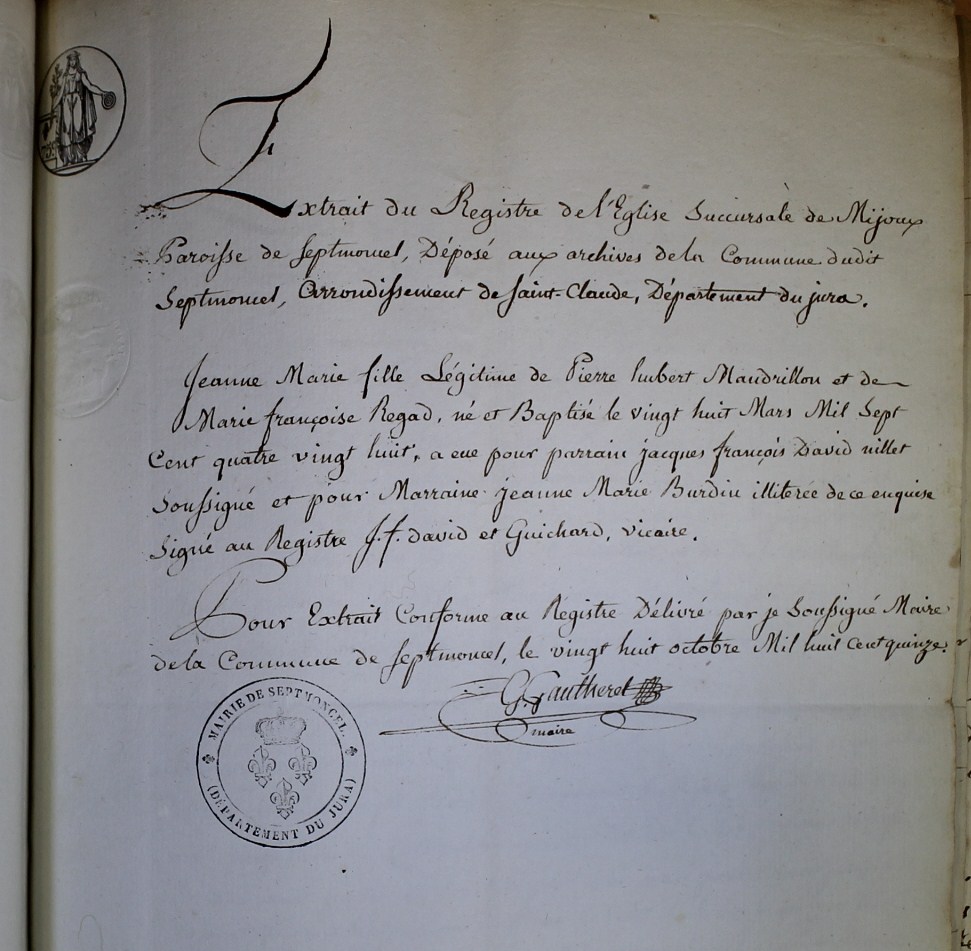 Extrait du Registre de l'Eglise Succursale de Mijoux
Paroisse de Septmoncel, Déposé aux archives de la Commune dudit
Septmoncel, Arrondissement de Saint-Claude, Département du jura.
Jeanne Marie fille Légitime de Pierre hubert Mandrillon et de
Marie françoise Regad, né et Baptisé le vingt huit Mars Mil Sept
Cent quatre vingt huit, a eue pour parrain jacques françois David
Soussigné et pour Marraine jeanne Marie Burdin illiterée de ce enquise
Signé au Registre J. f. david et Guichard, vicaire.
Pour Extrait Conforme au Registre Délivré par je Soussigné Maire
de la Commune de Septmoncel, le vingt huit octobre Mil huit cent quinze.
G. Gautheret
maire
MAIRIE DE SEPTMONCEL.
(DÉPARTEMENT DU JURA)